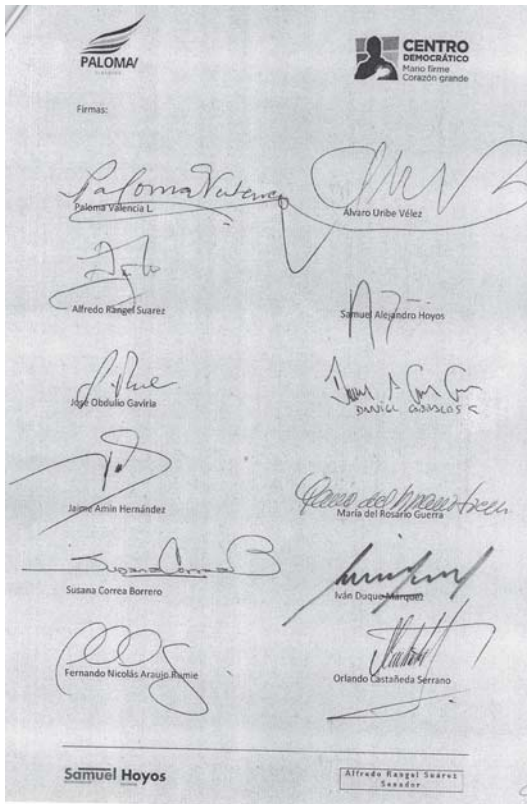 PALOMA
CENTRO
DEMOCRÁTICO
Mano firme
Corazón grande
Firmas:
Paloma Valencia
Paloma Valencia L.
Álvaro Uribe Vélez
Alfredo Rangel Suarez
Samuel Alejandro Hoyos
José Obdulio Gaviria
DANIEL CABRALES C
Jaime Amin Hernández
María del Rosario Guerra
Susana Correa B
Susana Correa Borrero
Iván Duque Marquez
Fernando Nicolás Araujo Rumie
Orlando Castañeda Serrano
Samuel Hoyos
Alfredo Rangel Suárez
Senador